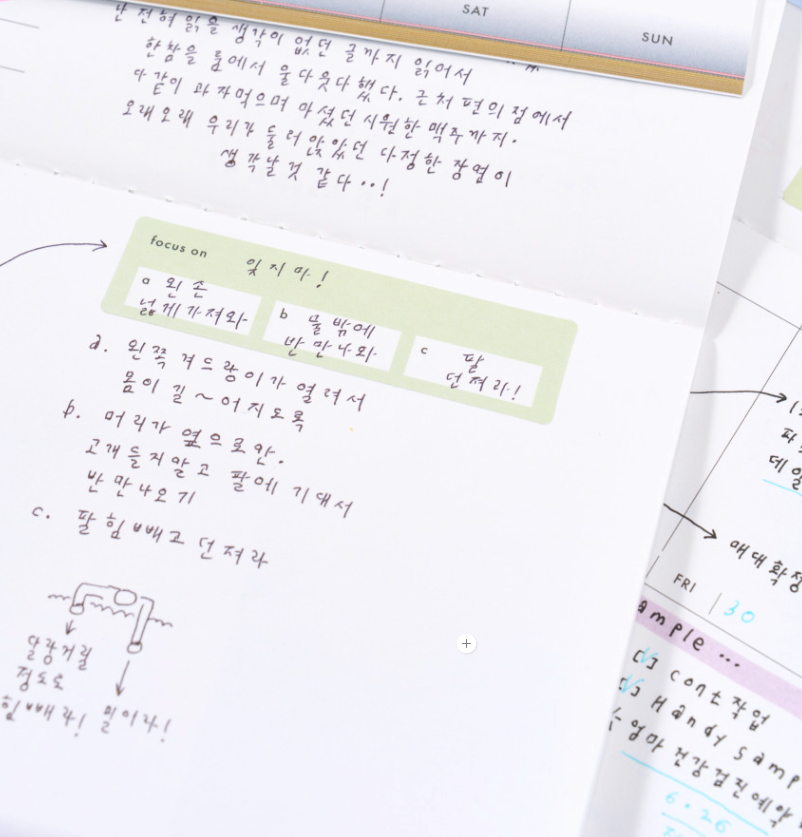 SAT
SUN
난 전혀 읽을 생각이 없던 글까지 읽어서
한참을 룸에서 울다웃다했다. 근처 편의점에서
다같이 과자먹으며 마셨던 시원한 맥주까지.
오래오래 우리가 둘러앉았던 다정한 장면이
생각날것 같다..!
focus on 잊지마!
a 왼손
넓게가져와
b 물밖에
반만나와
c 팔
던져라!
a. 왼쪽 겨드랑이가 열려서
몸이 길~어지도록
b. 머리가 옆으로만.
고개들지말고 팔에 기대서
반만나오기
c. 팔힘빼고 던져라
달랑거릴
정도로
힘빼라! 밀어라!
매대확정
FRI 30
ample ...
[v] cont 작업
[v] Handy samp
엄마 건강검진예약
6.26